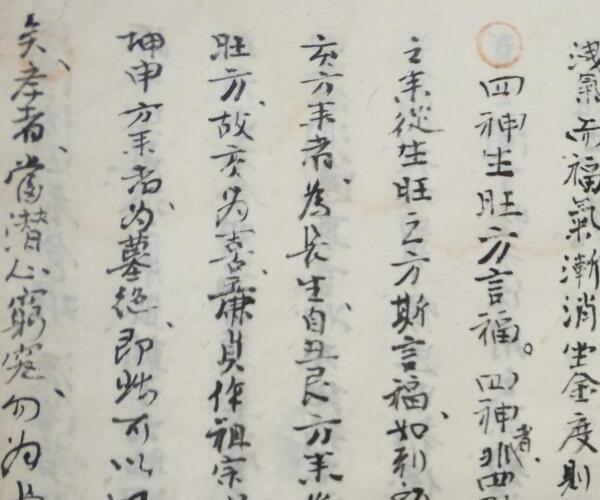 淺氣而福氣漸消坐金度則
四神生旺方言福。四神者非四
之来從生旺之方斯言福、如列
亥方来者、為長生自丑艮方来
旺方、故亥为喜、廉貞作祖宗
坤申方来者为墓绝、即此可以
矣、孝者、當潜心窮究、勿为